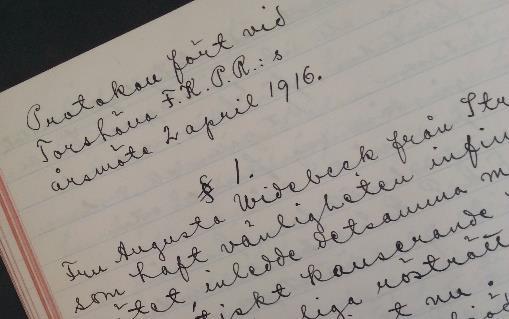 Protokoll fört vid
Torshälla F.K.P.R.:s
årsmöte 2 april 1916.
§ 1.
Fru Augusta Widebeck från Str
som haft vänligheten infin
inledde detsamma m
kåserande
liga rösträtt
t nu